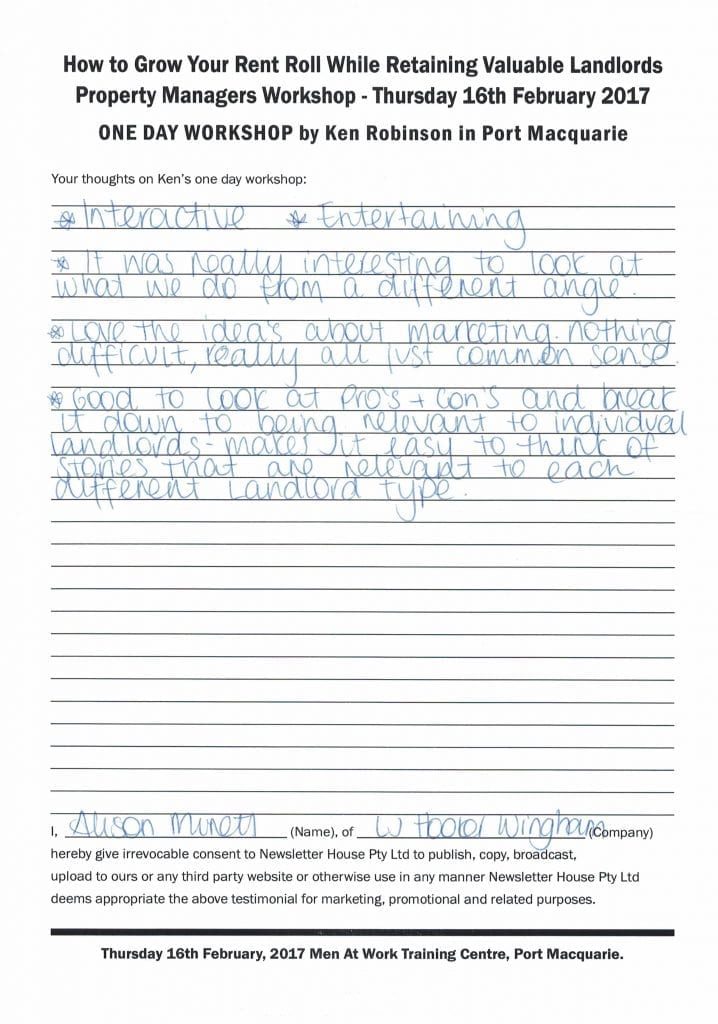 How to Grow Your Rent Roll While Retaining Valuable Landlords
Property Managers Workshop - Thursday 16th February 2017
ONE DAY WORKSHOP by Ken Robinson in Port Macquarie
Your thoughts on Ken's one day workshop:
* Interactive * Entertaining
* It was really interesting to look at
what we do from a different angle.
* Love the idea's about marketing. nothing
difficult, really all just common sense.
* Good to look at Pro's + Con's and break
it down to being relevant to individual
landlords - makes it easy to think of
stories that are relevant to each
different Landlord type.
I, Alison (Name), of LJ Hooker Wingham (Company)
hereby give irrevocable consent to Newsletter House Pty Ltd to publish, copy, broadcast,
upload to ours or any third party website or otherwise use in any manner Newsletter House Pty Ltd
deems appropriate the above testimonial for marketing, promotional and related purposes.
Thursday 16th February, 2017 Men At Work Training Centre, Port Macquarie.